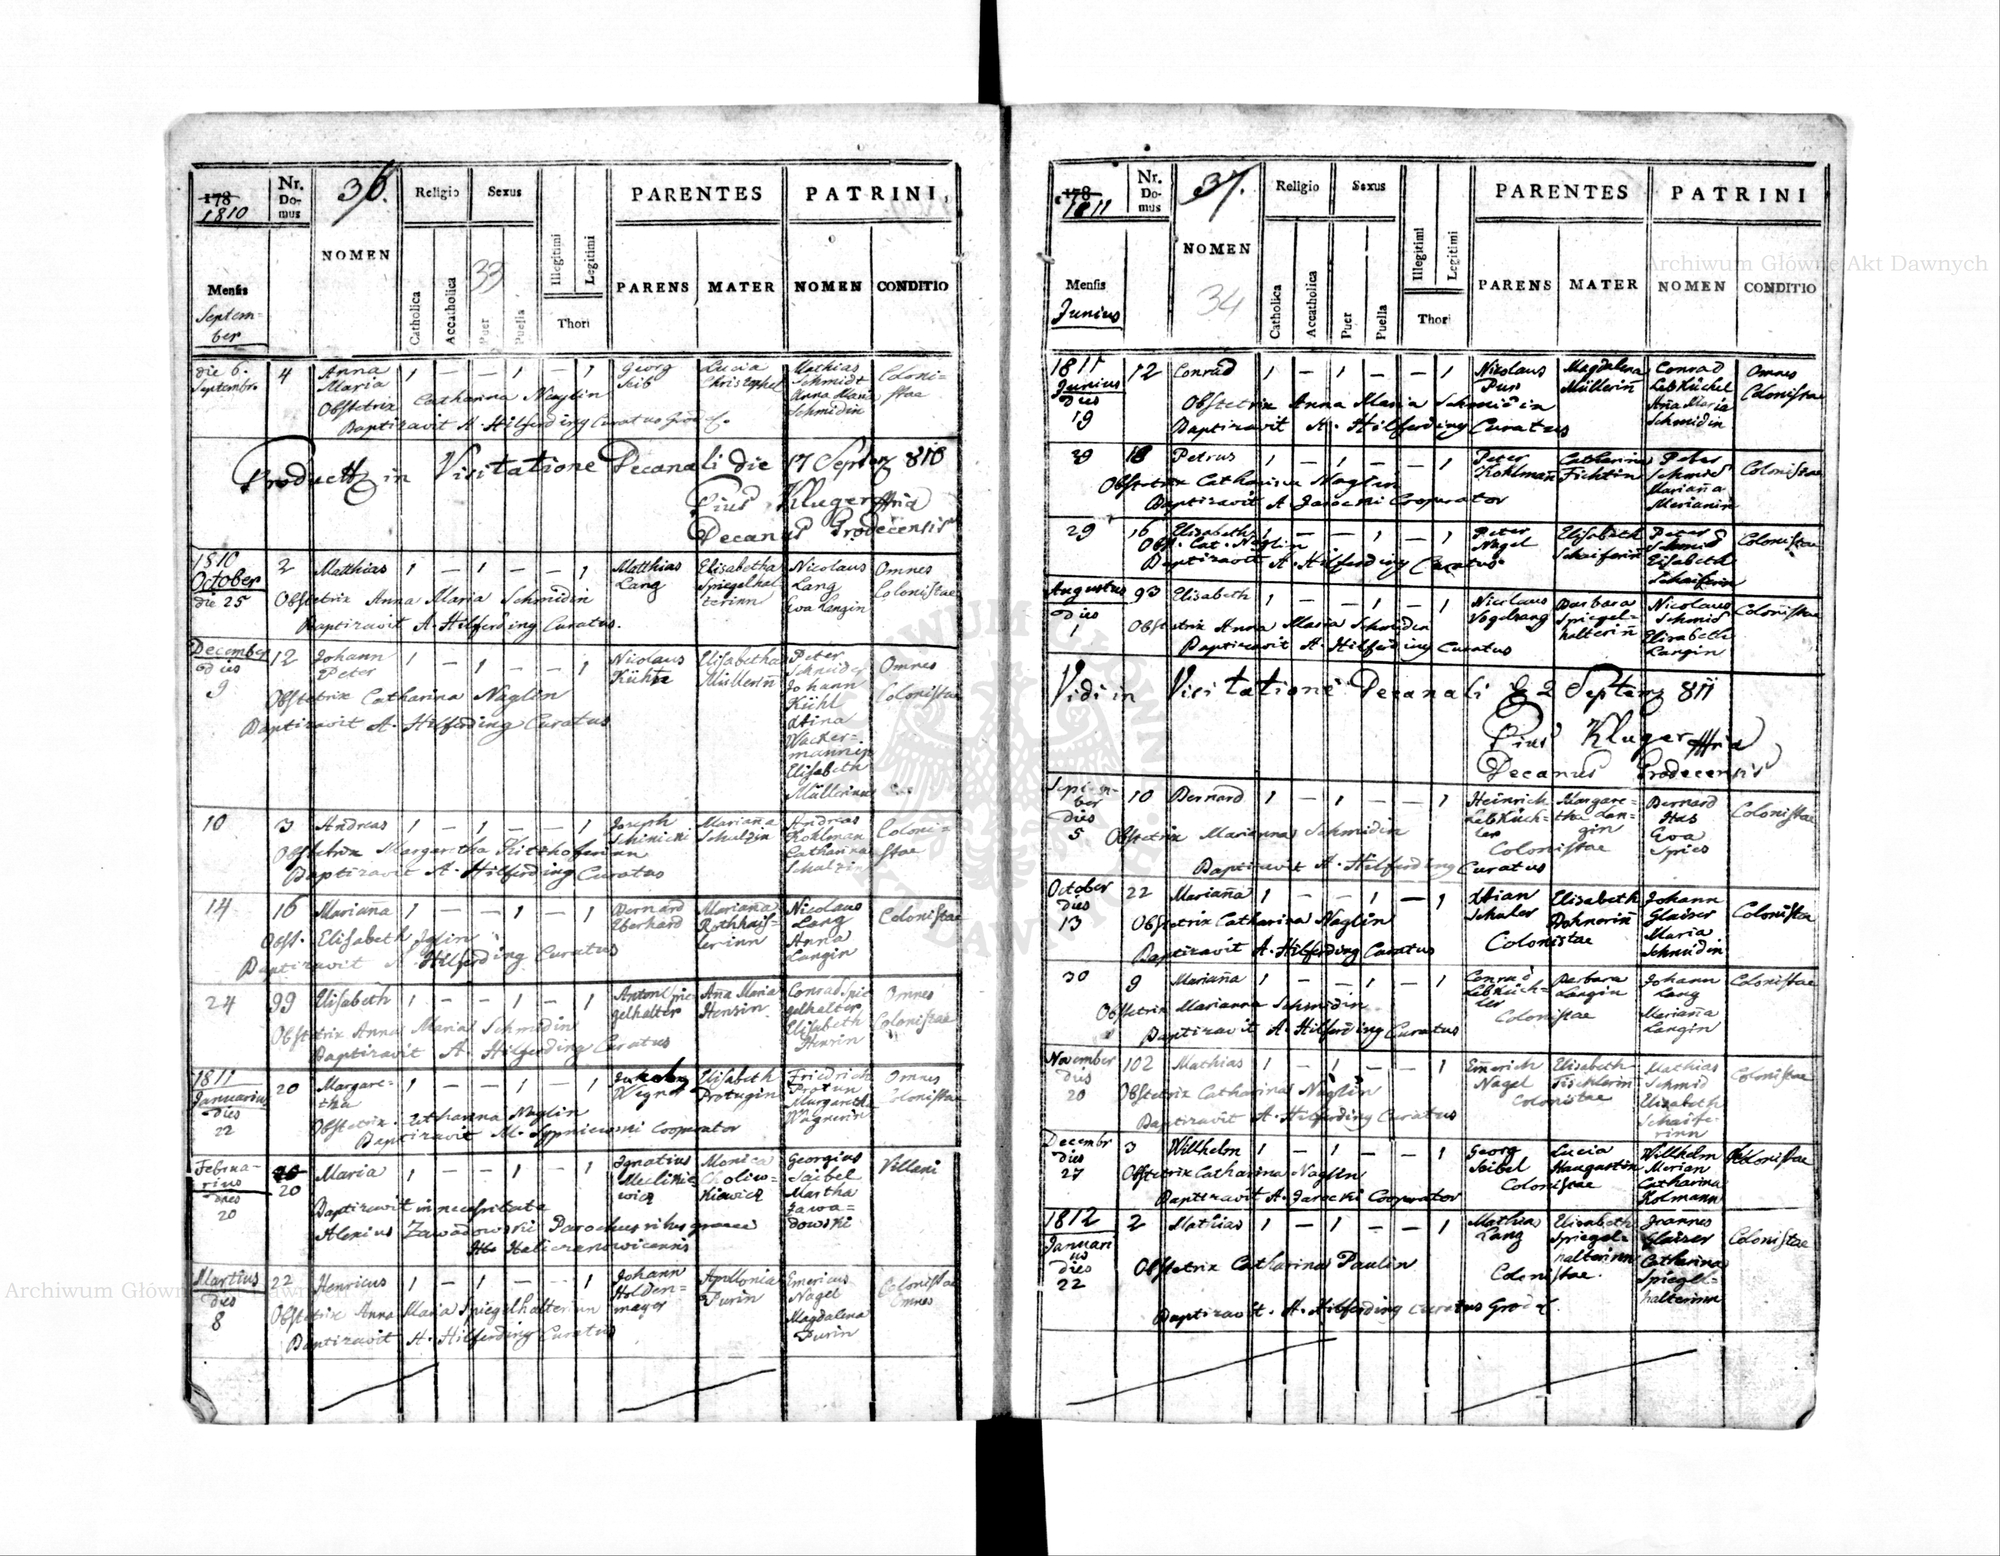 178
1810
Nr. Do-mus
36.
Religio
Sexus
PARENTES
PATRINI,
NOMEN
33
Illegitimi
Legitimi
Mensis
Septem-
ber
Catholica
Accatholica
Puer
Puella
Thori
PARENS
MATER
NOMEN
CONDITIO
die 6. 4 Anna 1 — — 1 — 1 Georg Lucia Mathias Coloni=
Septembr. Maria Seib Christophel Schmidt stae
Obstetrix Catharina Naglin Anna Maria
Baptizavit A. Hilferding Curatus Schmidin
in Visitatione Decanali die 17 Septem 810
Pius Kluger
Decanus Grodecensis
1810
October 2 Matthias 1 — 1 — — 1 Matthias Elisabetha Nicolaus Omnes
die 25 Lang Spiegelhal Lang Colonistae
terinn Eva Langin
Obstetrix Anna Maria Schmidin
Baptizavit A. Hilferding Curatus.
December 12 Johann 1 — 1 — — 1 Nicolaus Elisabetha Peter Omnes
dies Peter Kühn Müllerin Schneider Colonistae
9 Johann
Obstetrix Catharina Naglin Kühl
Baptizavit A. Hilferding Curatus Xtina
Wacker=
mannin
Elisabeth
Müllerin
10 3 Andreas 1 — 1 — — 1 Joseph Mariana Andreas Coloni=
Schulzin Kohlman stae
Obstetrix Margaretha Kitzhoferinn Catharina
Baptizavit A. Hilferding Curatus Schulzin
14 16 Mariana 1 — — 1 — 1 Bernard Mariana Nicolaus Colonistae
Eberhard Rothhäus= Lang
lerinn Anna
Langin
Obst. Elisabeth Iglin
Baptizavit A Hilferding Curatus
24 99 Elisabeth 1 — — 1 — 1 Anton Spie Ana Maria Conrad Spie Omnes
gelhalter Hensin gelhalter Colonistae
Obstetrix Anna Maria Schmidin Elisabeth
Baptizavit A. Hilferding Curatus Hensin
1811
Januarius 20 Margare= 1 — — 1 — 1 Wegner Elisabeth Friedrich Omnes
dies tha Protugin Protun Colonistae
22 Margaretha
Obstetrix Catharina Naglin Wagnerin
Baptizavit M. Sypniewski Cooperator
Februa= 20 Maria 1 — — 1 — 1 Ignatius Monica Georgius Villani
rius Choliw= Seibel
dies kiewicz Martha
20 Zawa=
dowski
Baptizavit in necessitate
Alexius Zawadowski Parochus ritus graeci
Martius 22 Henricus 1 — 1 — — 1 Johann Apollonia Emericus Colonistae
dies Holden= Purin Nagel Omnes
8 mayer Magdalena
Purin
Obstetrix Anna Maria Spiegelhalterinn
Baptizavit A. Hilferding Curatus
178
1811
Nr. Do-mus
37.
Religio
Sexus
PARENTES
PATRINI
NOMEN
34
Illegitimi
Legitimi
Mensis
Junius
Catholica
Accatholica
Puer
Puella
Thori
PARENS
MATER
NOMEN
CONDITIO
1811
Junius 12 Conrad 1 — 1 — — 1 Nicolaus Magdalena Conrad Omnes
dies Pur Müllerin Lebküchel Colonistae
19 Ana Maria
Schmidin
Obstetrix Anna Maria Schmidin
Baptizavit A. Hilferding Curatus
29 18 Petrus 1 — 1 — — 1 Peter Catharina Peter Colonistae
Kohlman Fichtin Schmid
Mariana
Merianin
Obstetrix Catharina Naglin
Baptizavit A Jarocki Cooperator
29 16 Elisabeth 1 — — 1 — 1 Peter Elisabeth Peter Colonistae
Nagel Schaiferin Schmid
Elisabeth
Schaiferin
Obst. Cat. Naglin
Baptizavit A. Hilferding Curatus
Augustus 93 Elisabeth 1 — — 1 — 1 Nicolaus Barbara Nicolaus Colonistae
dies Vogelsang Spiegel= Schmid
1 halterin Elisabeth
Langin
Obstetrix Anna Maria Schmidin
Baptizavit A. Hilferding Curatus
Vidi in Visitatione Decanali d 2 Septem 811
Pius Kluger
Decanus Grodecensis
Septem=
ber 10 Bernard 1 — 1 — — 1 Heinrich Margare= Bernard Colonistae
dies Lebküch= tha Lan= Has
5 ler gin Eva
Colonistae Spies
Obstetrix Marianna Schmidin
Baptizavit A. Hilferding Curatus
October 22 Mariana 1 — — 1 — 1 Xtian Elisabeth Johann Colonistae
dies Schuler Dohnerin Glaiser
13 Colonistae Maria
Schmidin
Obstetrix Catharina Naglin
Baptizavit A. Hilferding Curatus
30 9 Mariana 1 — — 1 — 1 Conrad Barbara Johann Colonistae
Lebküch= Langin Lang
ler Mariana
Colonistae Langin
Obstetrix Marianna Schmidin
Baptizavit A. Hilferding Curatus
November 102 Mathias 1 — 1 — — 1 Emerich Elisabeth Mathias Colonistae
dies Nagel Tischlerin Schmid
20 Colonistae Elisabeth
Schaife=
rinn
Obstetrix Catharina Naglin
Baptizavit A. Hilferding Curatus
Decembr 3 Willhelm 1 — 1 — — 1 Georg Lucia Willhelm Colonistae
dies Seibel Haugustin Merian
27 Colonistae Catharina
Kolmann
Obstetrix Catharina Naglin
Baptizavit A. Jarocki Cooperator
1812 2 Mathias 1 — 1 — — 1 Mathia Elisabeth Joannes Colonistae
Januari Lang Spiegel= Glaiser
us halterinn Catharina
dies Colonistae. Spiegel=
22 halterinn
Obstetrix Catharina Paulin
Baptizavit. A. Hilferding Curatus
Archiwum Główne Akt Dawnych